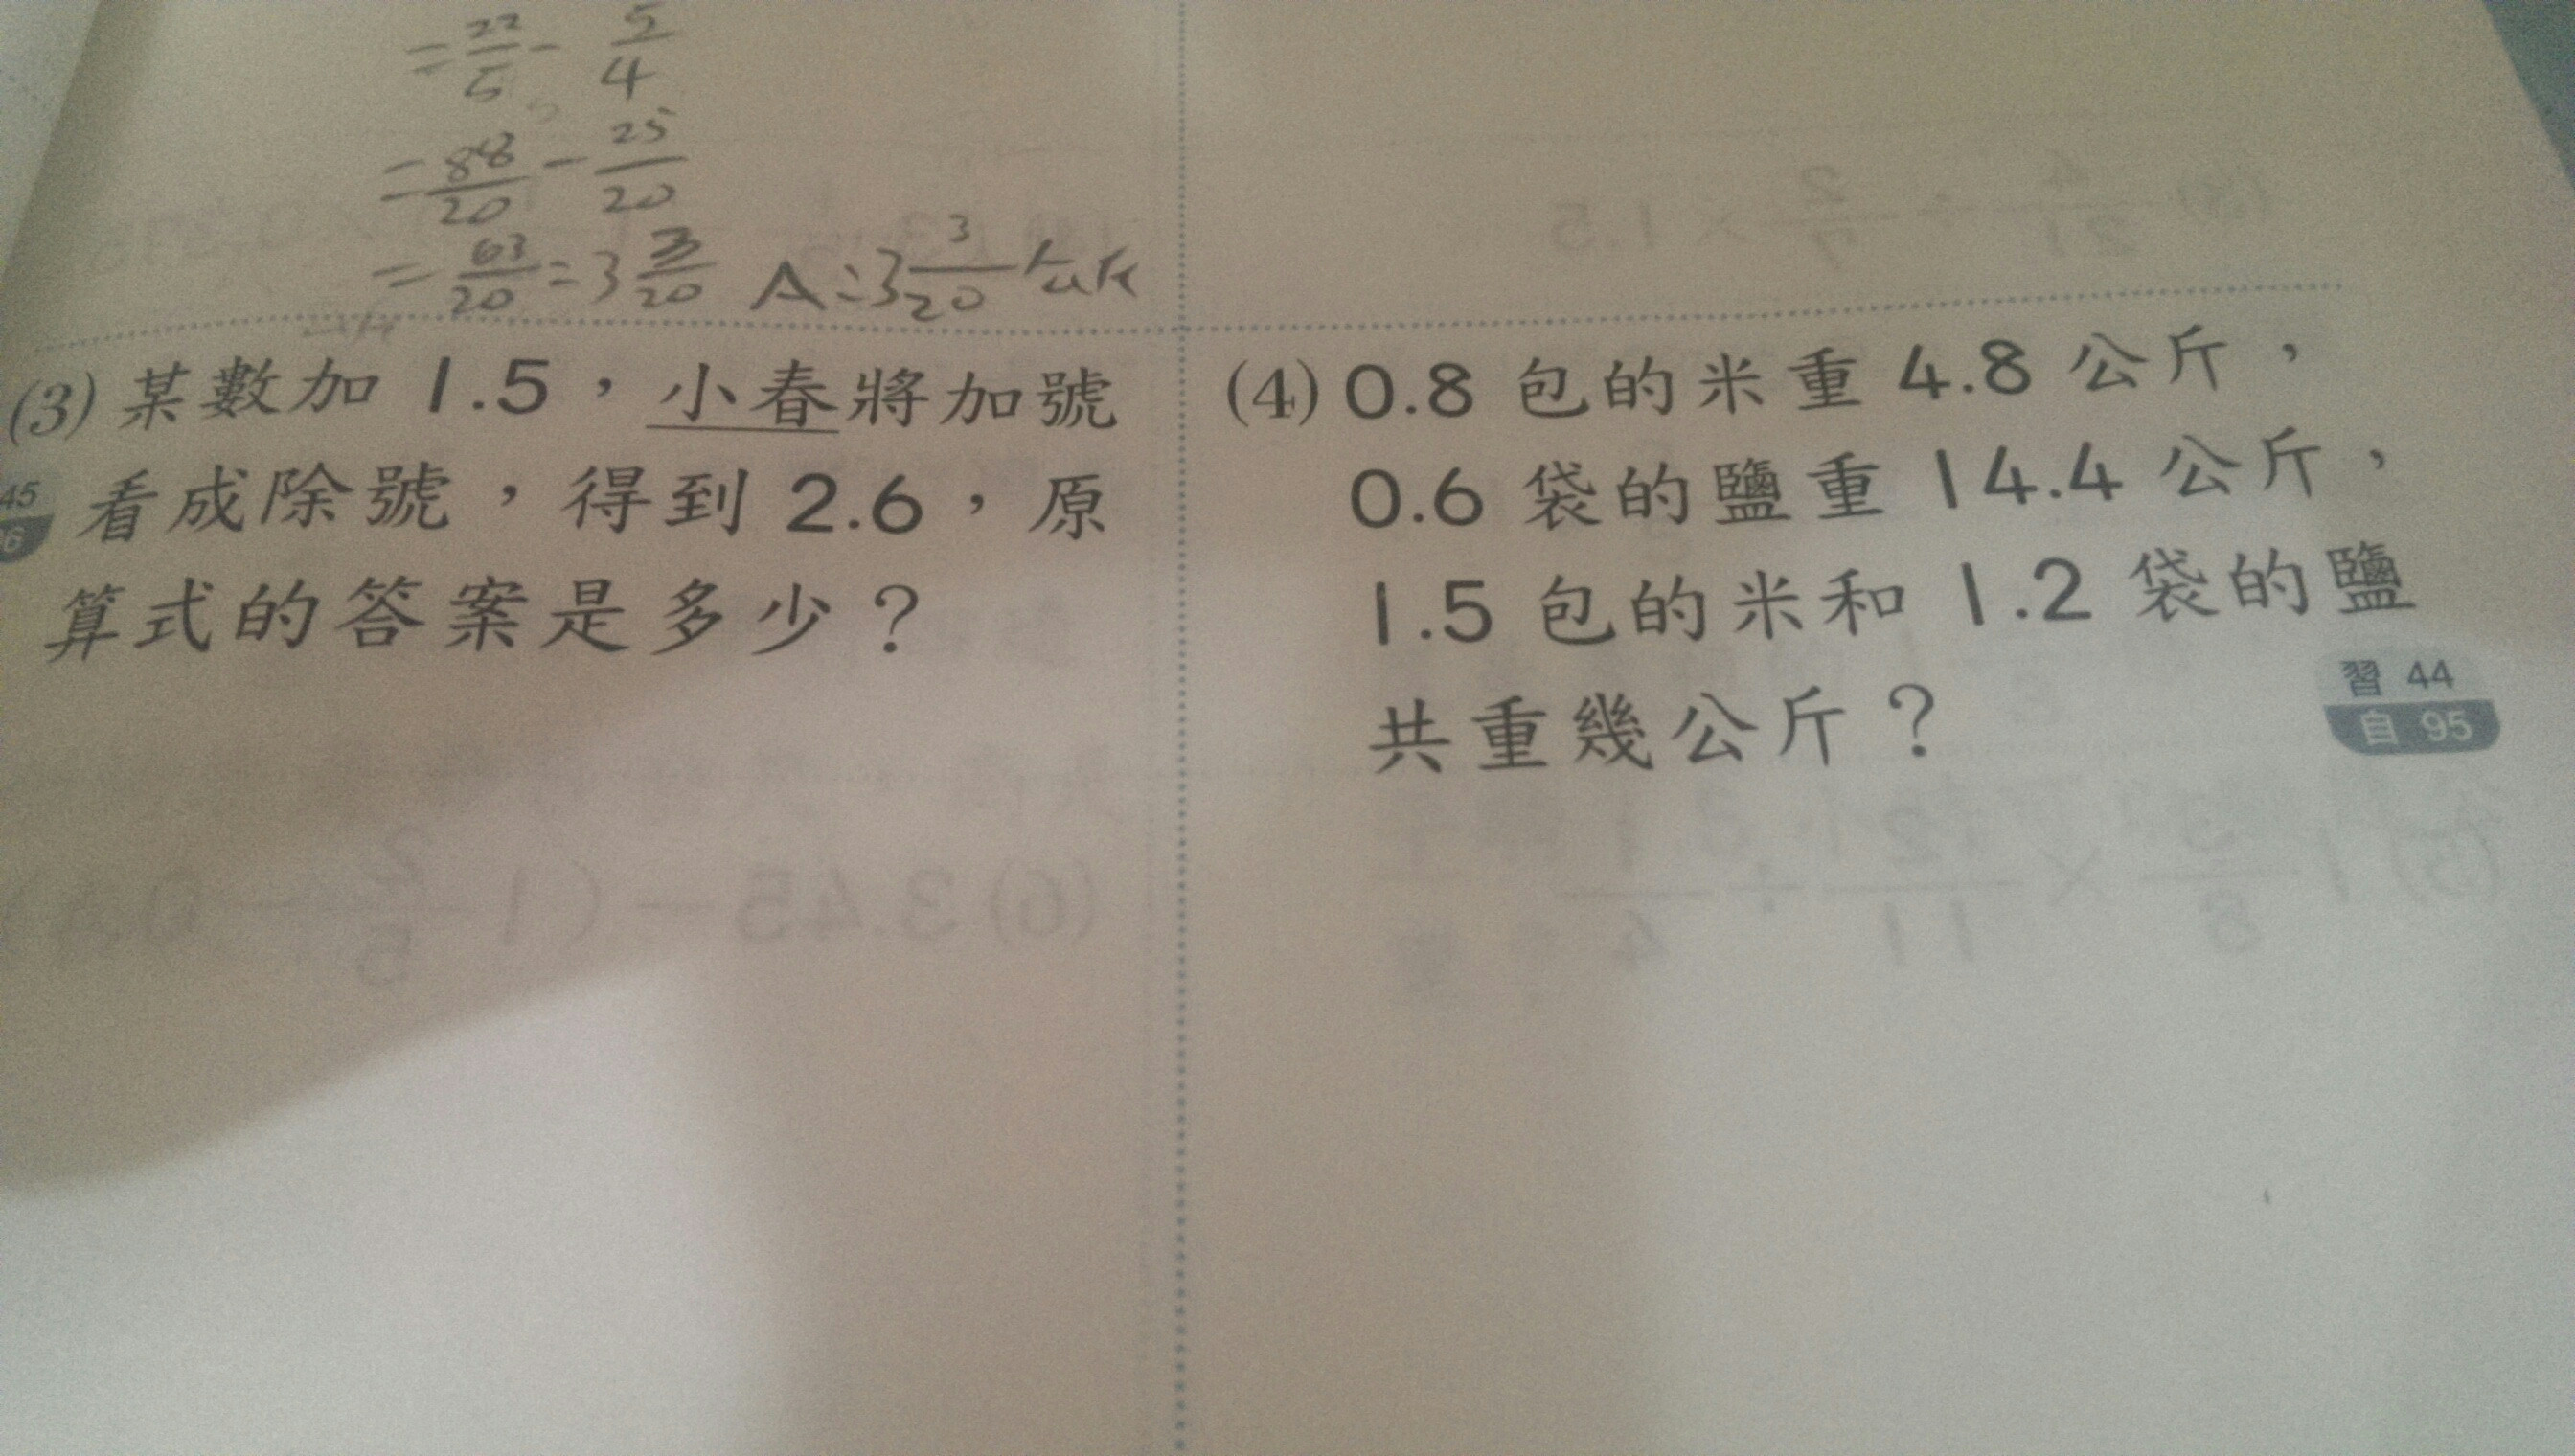 = 22/5 - 5/4
= 88/20 - 25/20
= 63/20 = 3 3/20 A:3 3/20 公斤
(3) 某數加 1.5，小春將加號
看成除號，得到 2.6，原
算式的答案是多少？
45
(4) 0.8 包的米重 4.8 公斤，
0.6 袋的鹽重 14.4 公斤，
1.5 包的米和 1.2 袋的鹽
共重幾公斤？
習 44
自 95